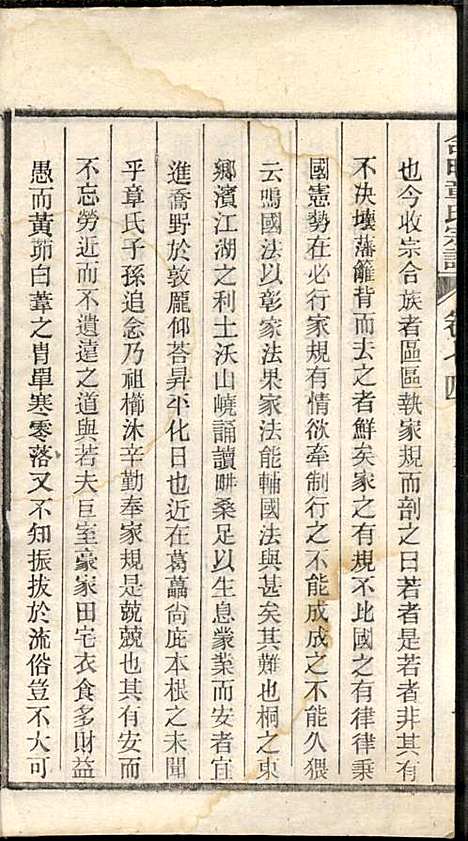 也今收宗合族者區區執家規而剖之曰若者是若者非其有
不决壞藩籬背而去之者鮮矣家之有規不比國之有律律秉
國憲勢在必行家規有情欲牽制行之不能成成之不能久猥
云鳴國法以彰家法果家法能輔國法與甚矣其難也桐之東
鄉濱江湖之利土沃山嶢誦讀畊桑足以生息蒙業而安者宜
進喬野於敦龎仰荅昇平化日也近在葛藟尙庇本根之未聞
乎章氏子孫追念乃祖櫛沐辛勤奉家規是兢兢也其有安而
不忘勞近而不遺遠之道與若夫巨室豪家田宅衣食多財益
愚而黃茆白葦之胄單寒零落又不知振拔於流俗豈不大可